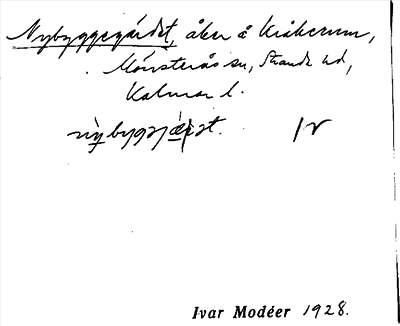 Nybyggegärdet, åker å Kråkerum,
Mönsterås sn, Stranda hd,
Kalmar l.
IV
Ivar Modéer 1928.